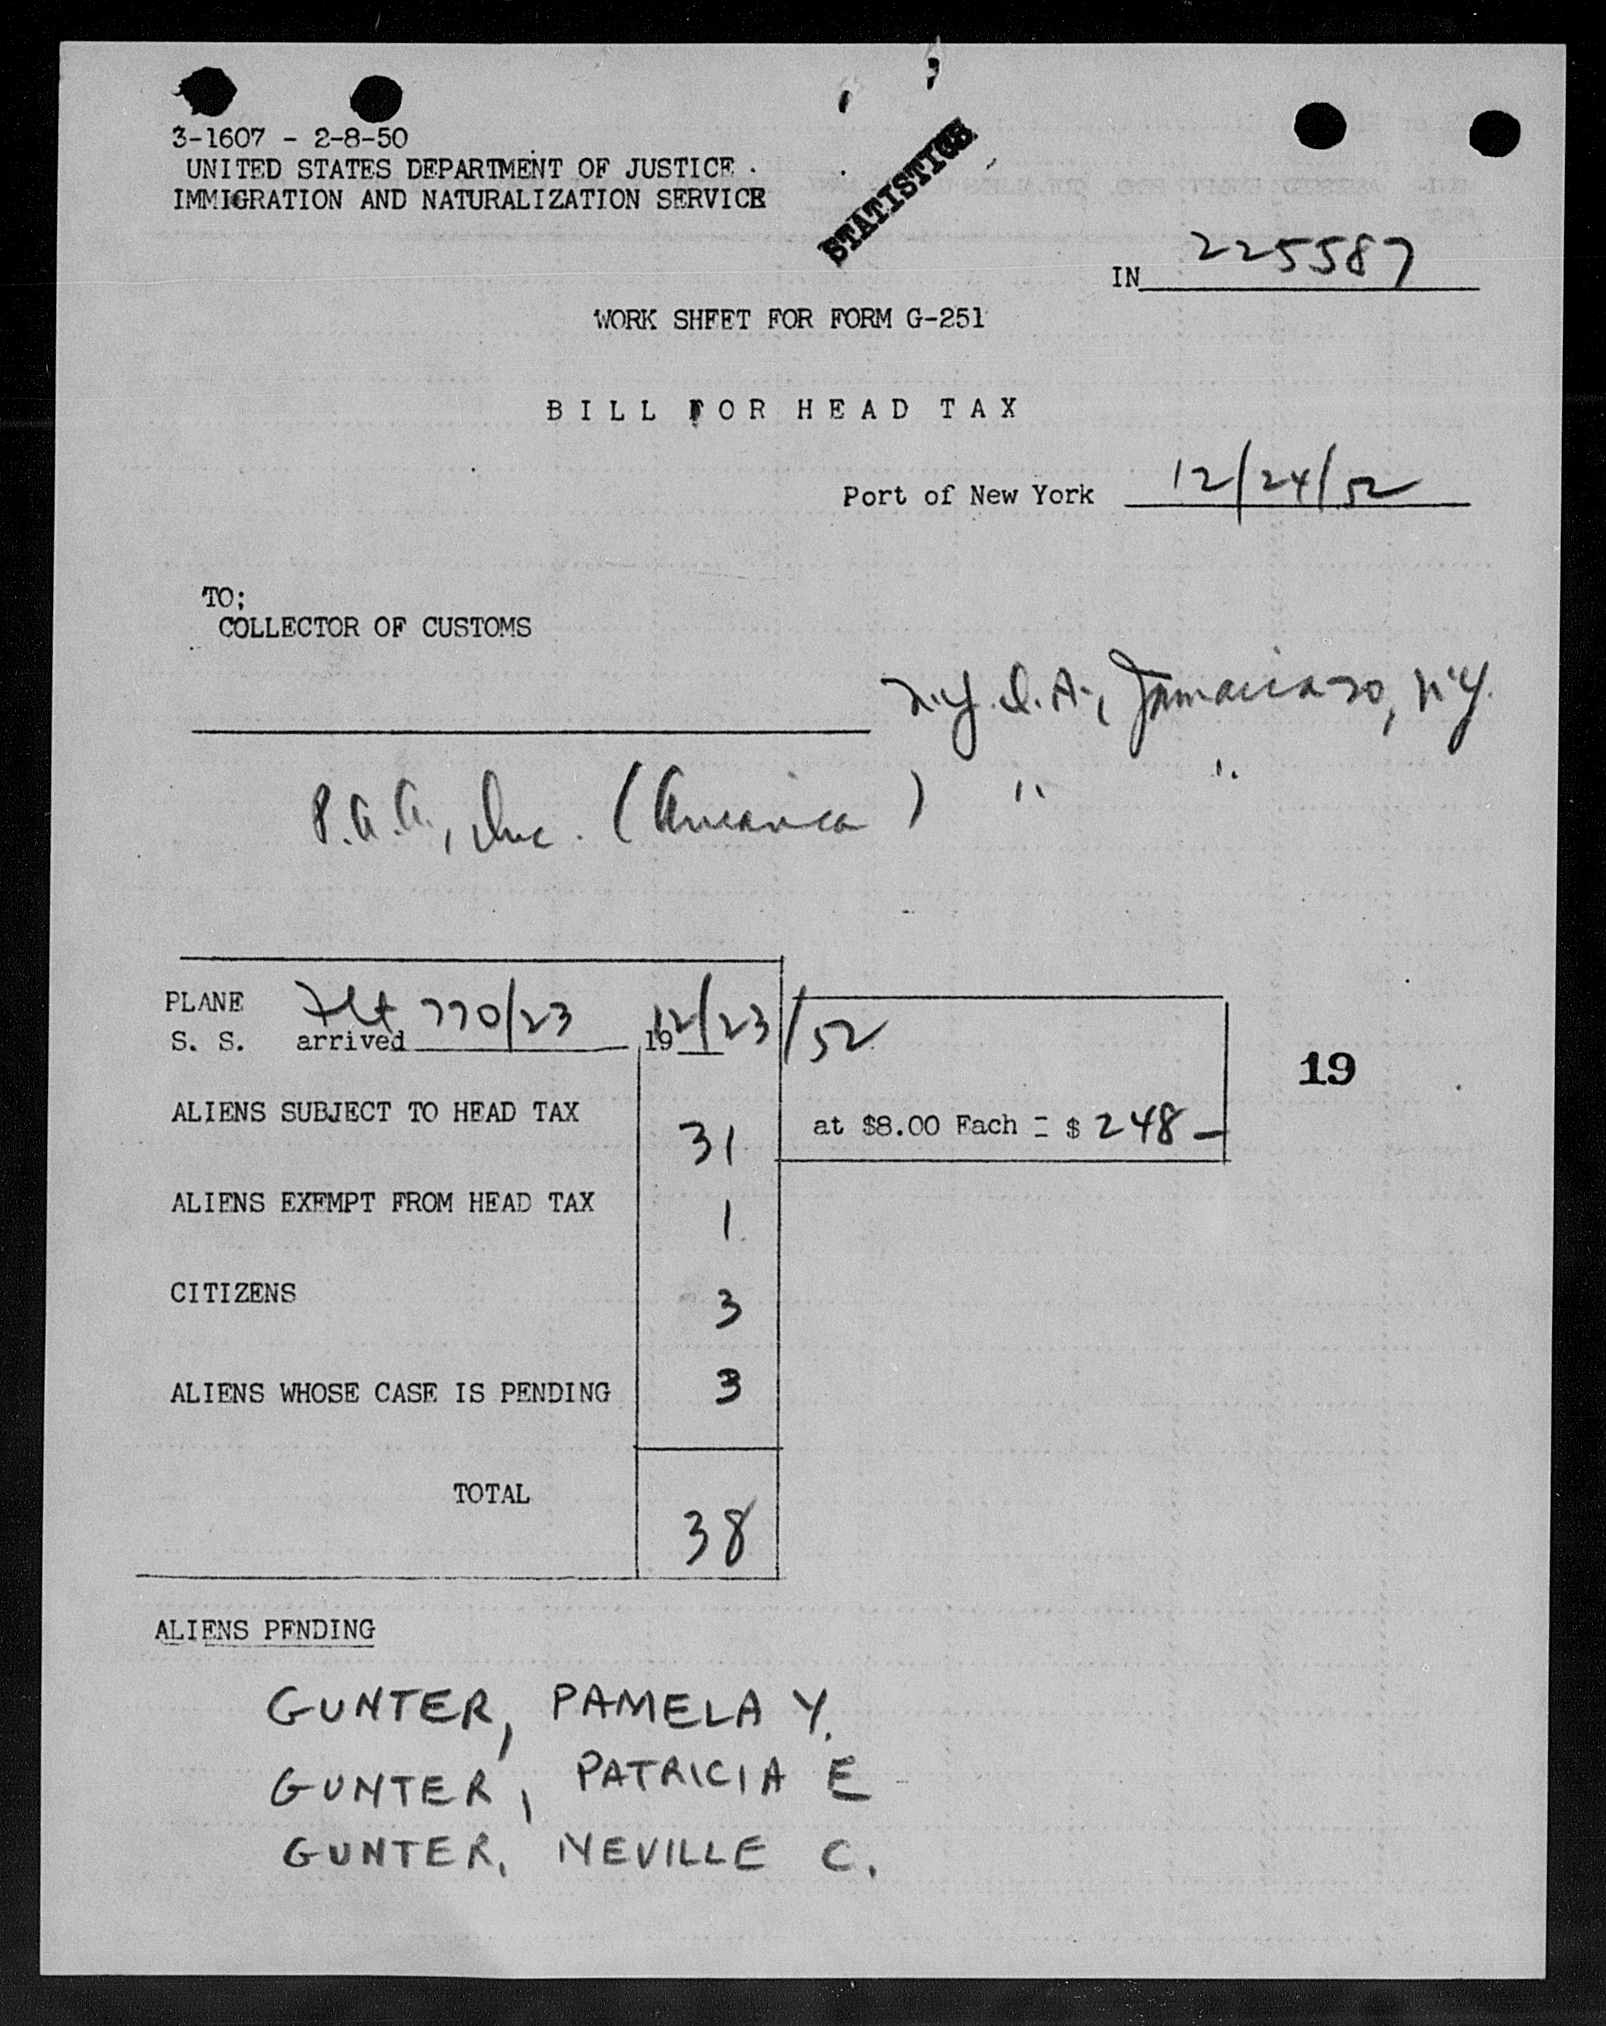 3-1607 - 2-8-50
UNITED STATES DEPARTMENT OF JUSTICE
IMMIGRATION AND NATURALIZATION SERVICE
STATISTICS
IN 225587
WORK SHEET FOR FORM G-251
BILL FOR HEAD TAX
Port of New York 12/24/52
TO;
COLLECTOR OF CUSTOMS
N.Y.I.A., Jamaica 30, N.Y.
P.A.A., Inc. (America) " "
PLANE Flt 770/23 12/23/52
S. S. arrived 19
19
ALIENS SUBJECT TO HEAD TAX 31 at $8.00 Each = $ 248 —
ALIENS EXEMPT FROM HEAD TAX 1
CITIZENS 3
ALIENS WHOSE CASE IS PENDING 3
TOTAL 38
ALIENS PENDING
GUNTER, PAMELA Y.
GUNTER, PATRICIA E
GUNTER, NEVILLE C.